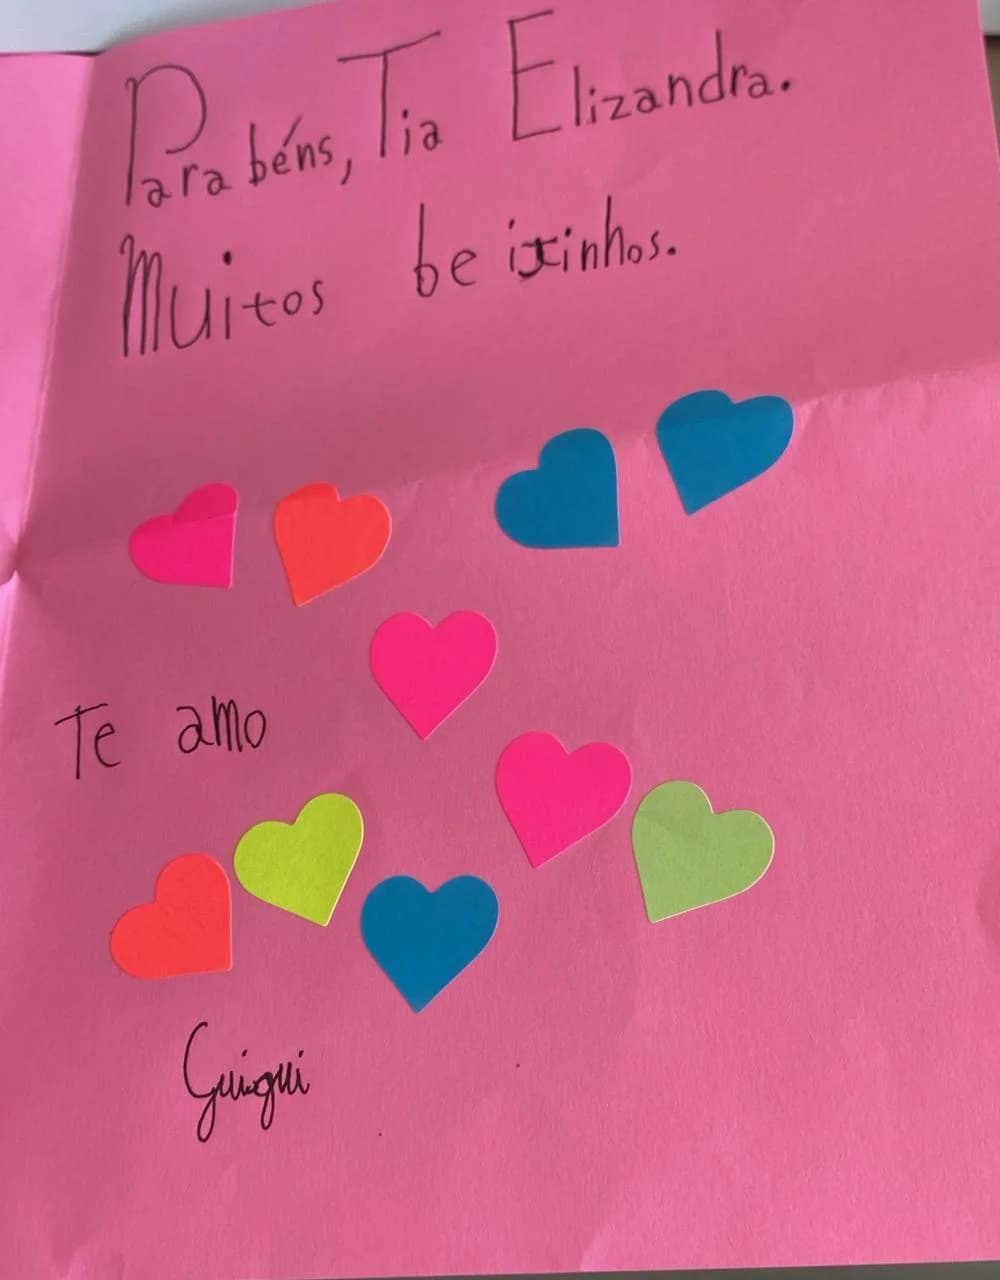 Parabéns, Tia Elizandra.
Muitos beixinhos.
Te amo
Guigui